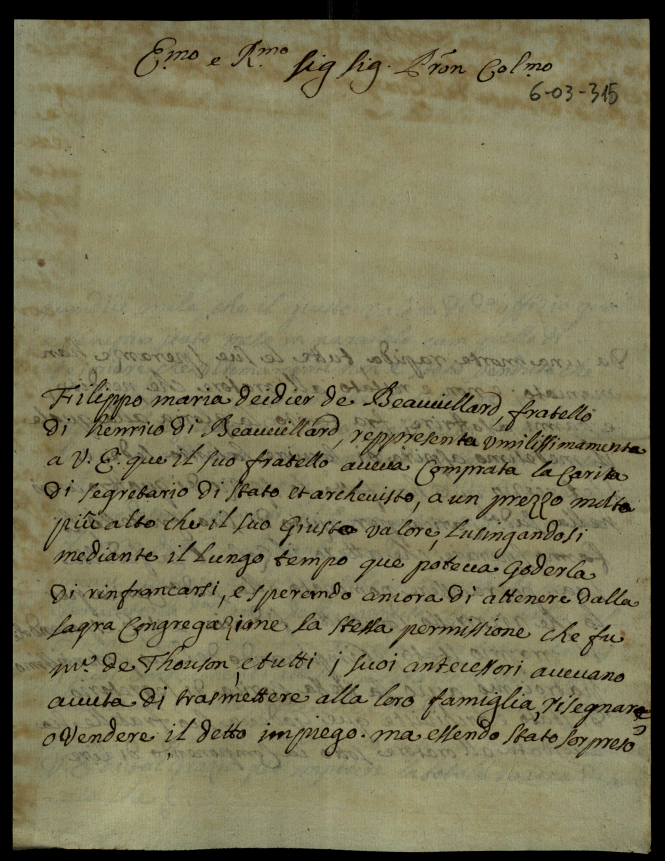 E.mo e R.mo Sig Sig. Pròn Col.mo
6-03-315
Filippo maria deidier de Beauvillard, fratello
di henrico di Beauvillard, reppresenta Umilissimamente
a V. E. que il suo fratello aveva Comprata la Carica
di segretario di stato et archevisto, a un prezzo molto
più alto che il suo Giusto valore, Lusingandosi
mediante il Lungo tempo que poteva Goderla
di rinfrancarsi, e sperando ancora di attenere dalla
sagra Congregazione la stessa permissione che fu
m.r de Thouson, e tutti i suoi antecessori avevano
avuta di trasmettere alla loro famiglia, risegnare
o Vendere il detto impiego. ma essendo stato sorpreso